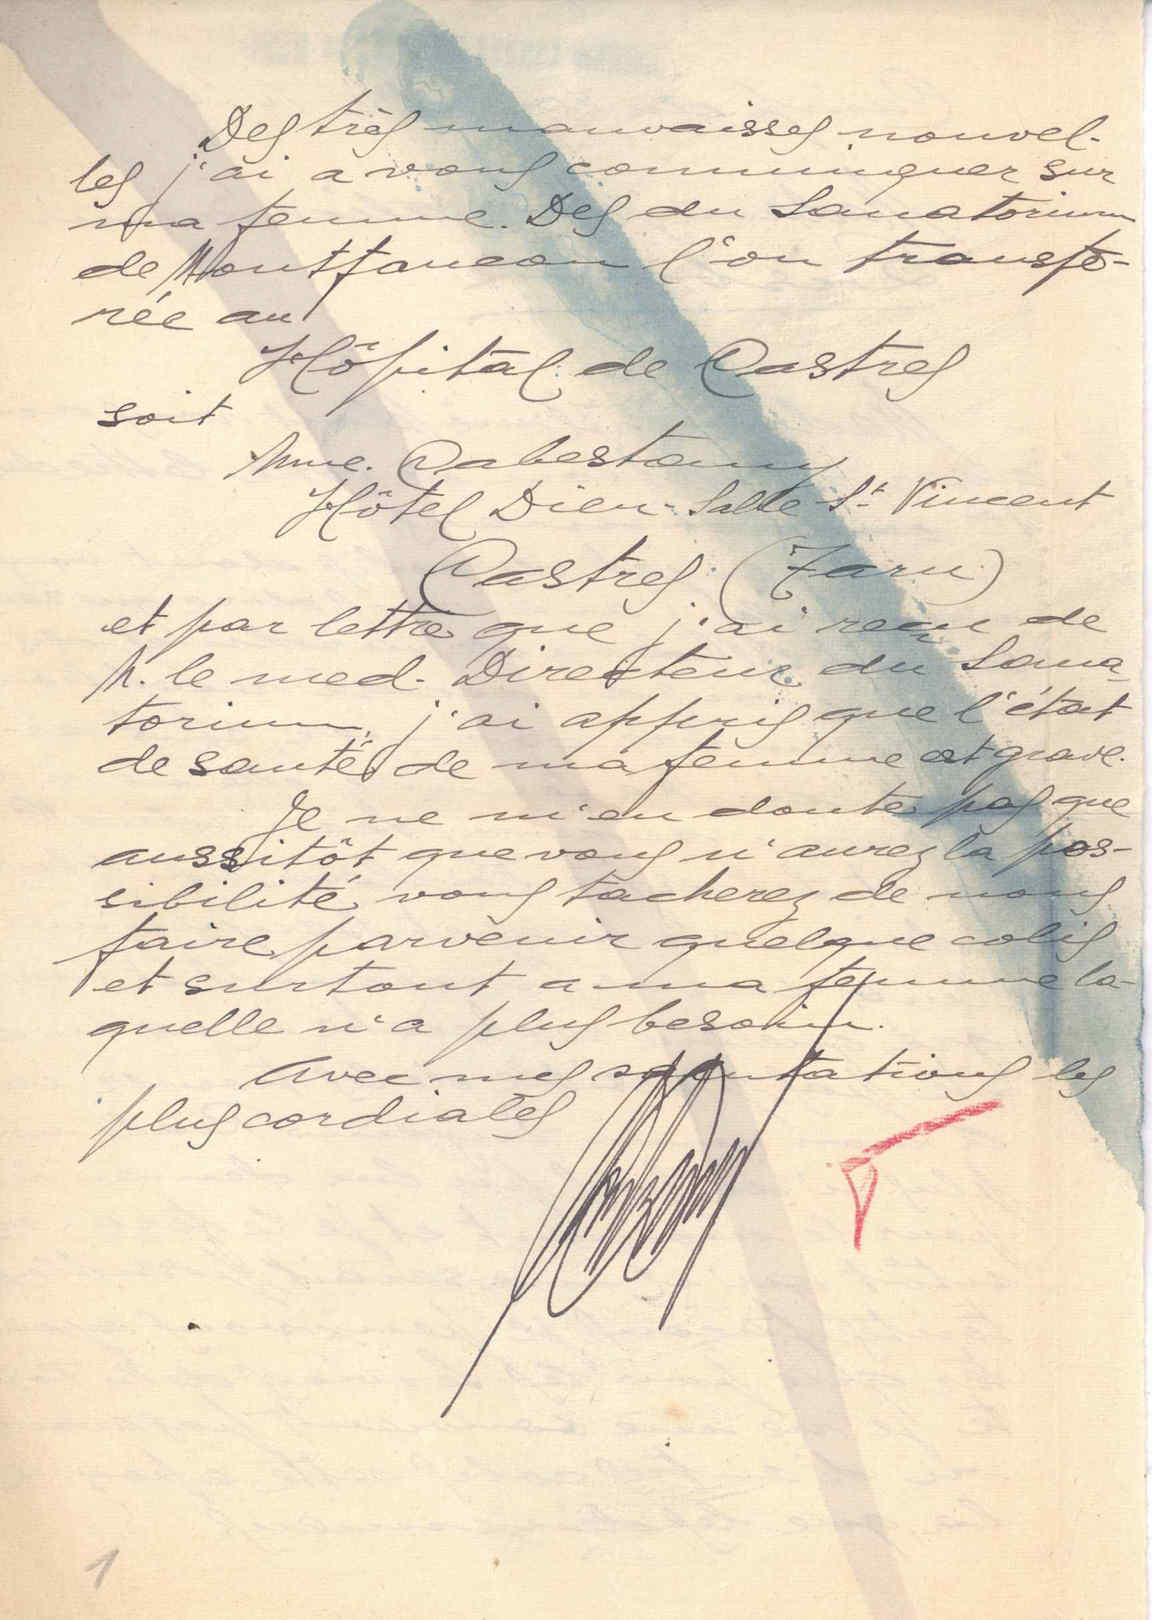 Des très mauvaisses nouvel-
les j'ai a vous communiquer sur
ma femme. Des du Sanatorium
de Montfaucon l'on transfe-
rée au
Hôpital de Castres
soit
Mme. Cabestany
Hôtel Dieu - Salle St. Vincent
Castres (Tarn)
et par lettre que j'ai reçu de
M. le med. Directeur du Sana-
torium, j'ai appris que l'état
de santé de ma femme est grave.
Je ne m'en doute pas que
aussitôt que vous n'aurez la pos-
sibilité vous tacherez de nous
faire parvenir quelque colis
et surtout a ma femme la-
quelle n'a plus besoin.
Avec mes salutations les
plus cordiales
1